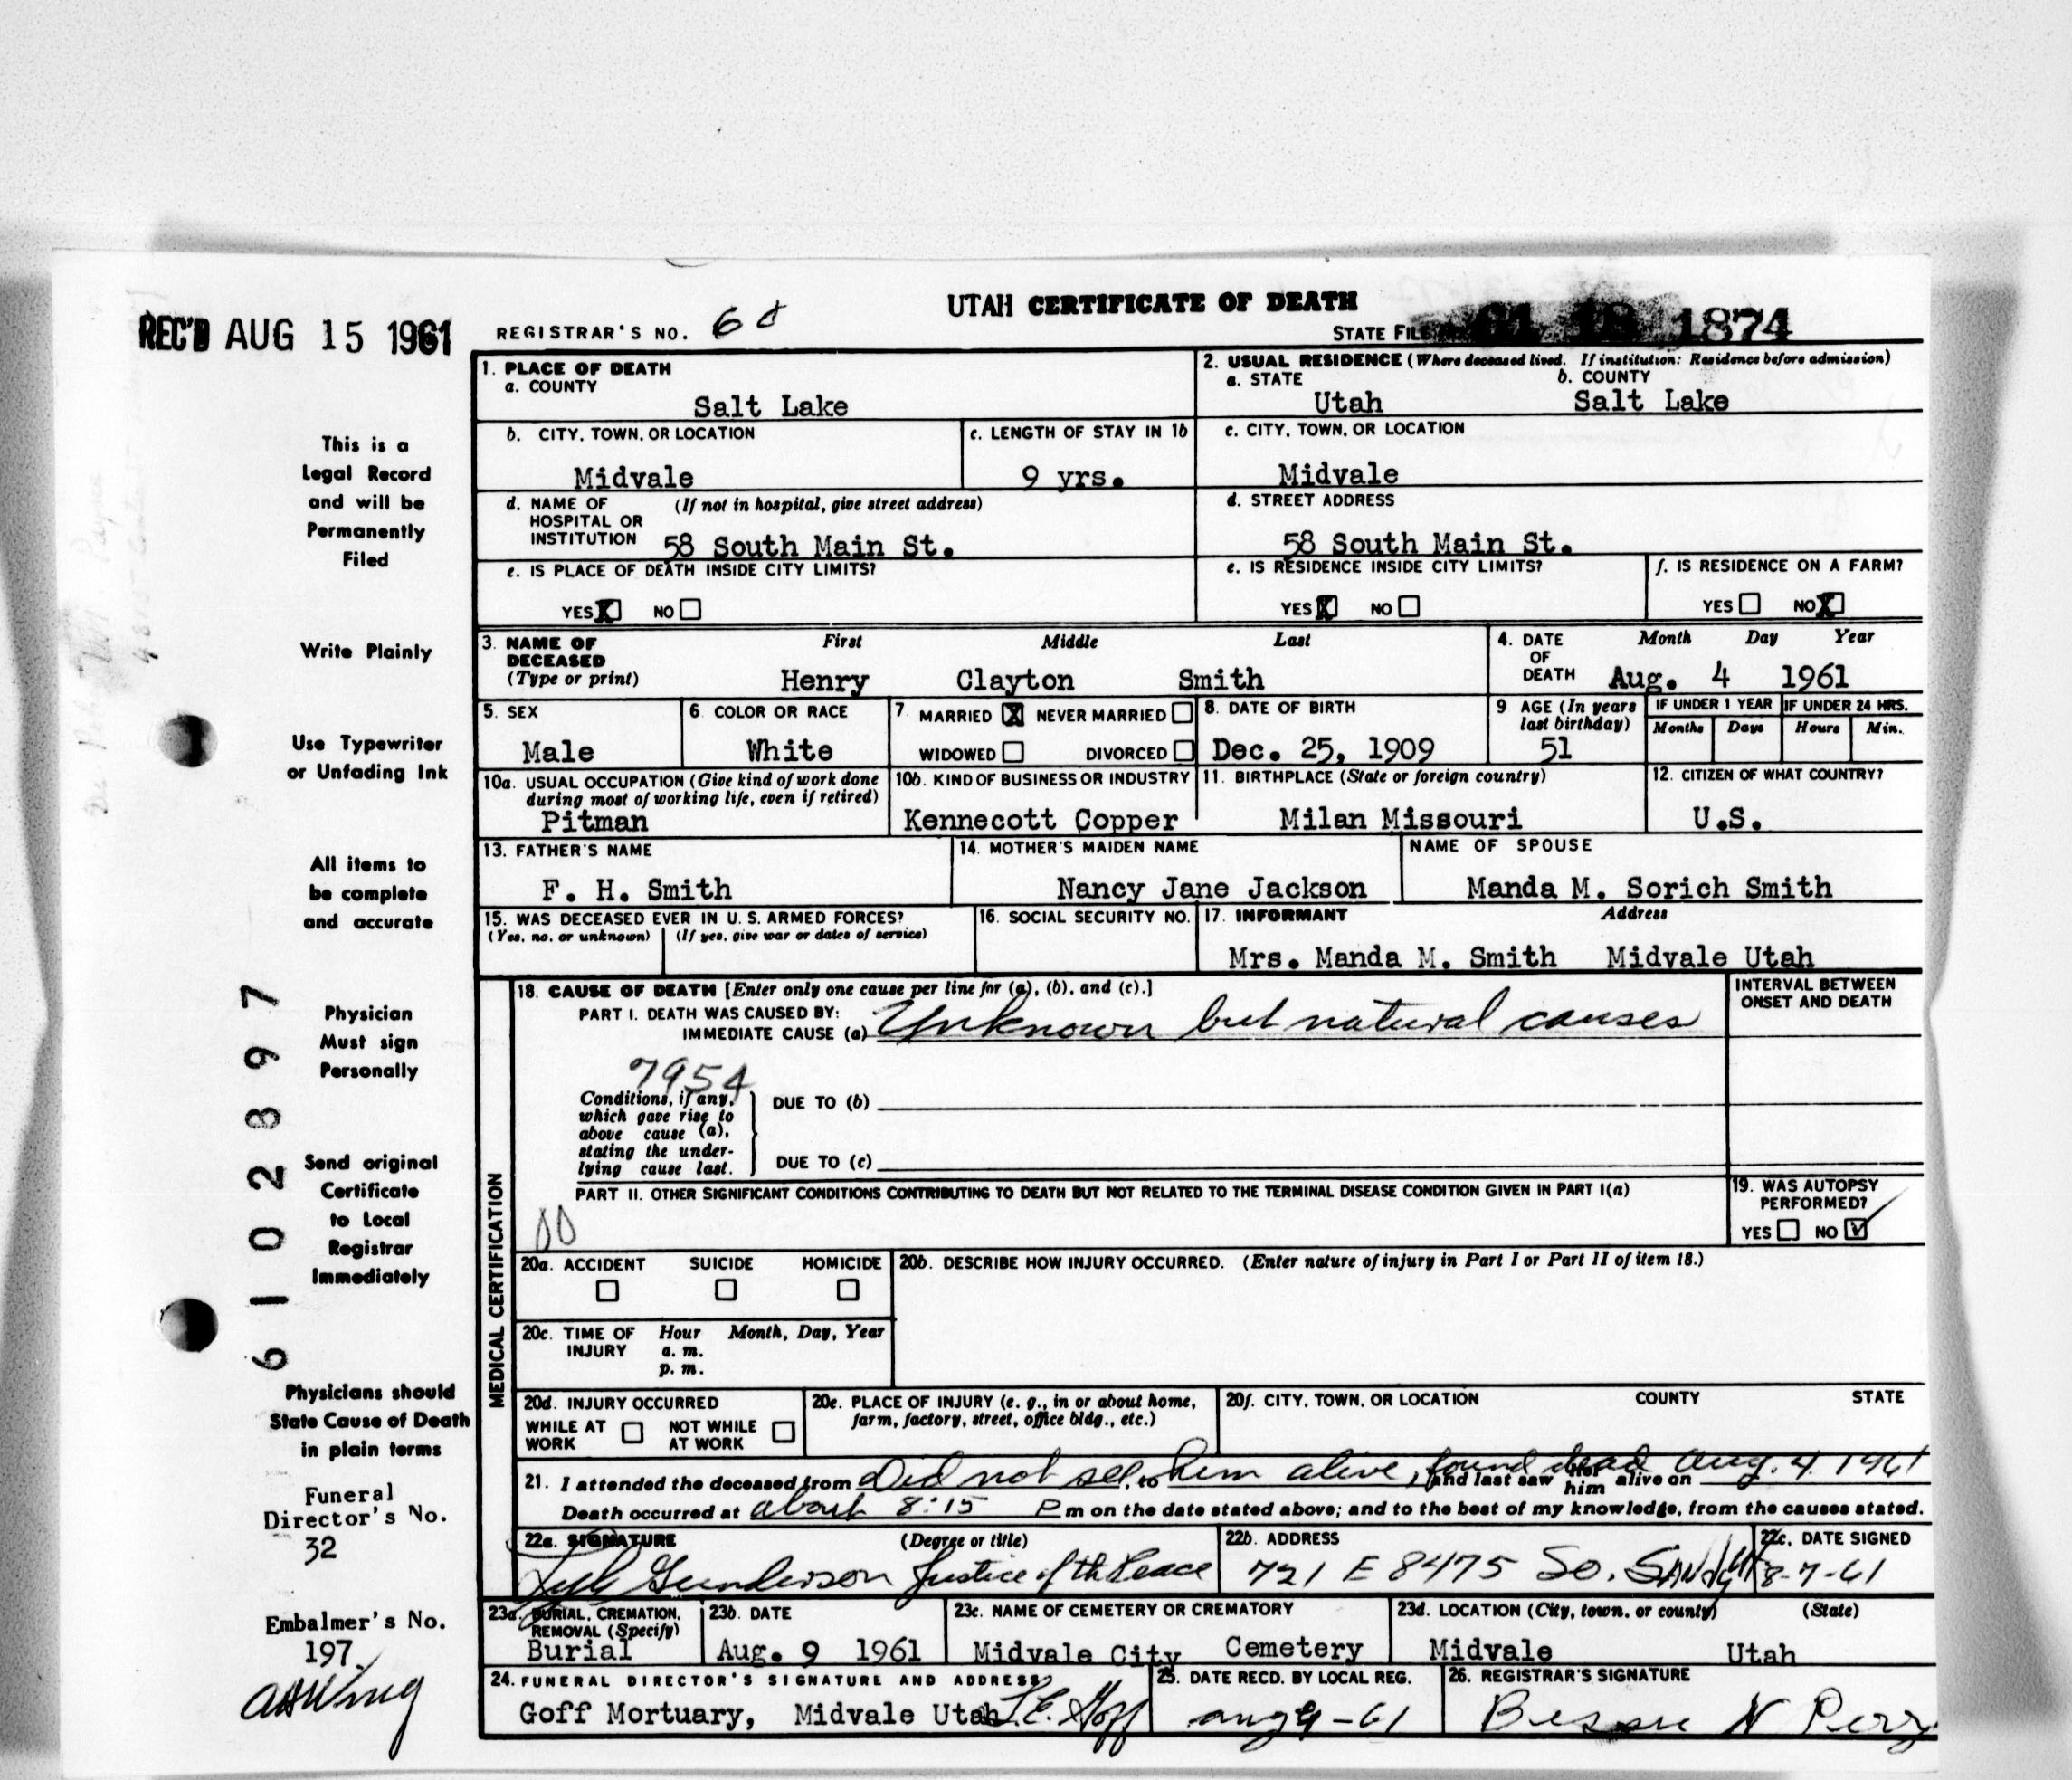 UTAH CERTIFICATE OF DEATH
REC'D AUG 15 1961
REGISTRAR'S NO.
STATE FILE 61 18 1874
1. PLACE OF DEATH
a. COUNTY
Salt Lake
2. USUAL RESIDENCE (Where deceased lived. If institution: Residence before admission)
a. STATE b. COUNTY
Utah Salt Lake
b. CITY, TOWN, OR LOCATION
Midvale
c. LENGTH OF STAY IN 1b
9 yrs.
c. CITY, TOWN, OR LOCATION
Midvale
d. NAME OF (If not in hospital, give street address)
HOSPITAL OR
INSTITUTION 58 South Main St.
d. STREET ADDRESS
58 South Main St.
e. IS PLACE OF DEATH INSIDE CITY LIMITS?
YES X NO
e. IS RESIDENCE INSIDE CITY LIMITS?
YES X NO
f. IS RESIDENCE ON A FARM?
YES NO X
3. NAME OF DECEASED (Type or print)
First Middle Last
Henry Clayton Smith
4. DATE OF DEATH
Month Day Year
Aug. 4 1961
5. SEX
Male
6. COLOR OR RACE
White
7. MARRIED X NEVER MARRIED
WIDOWED DIVORCED
8. DATE OF BIRTH
Dec. 25, 1909
9 AGE (In years last birthday)
51
IF UNDER 1 YEAR
Months Days
IF UNDER 24 HRS.
Hours Min.
10a. USUAL OCCUPATION (Give kind of work done
during most of working life, even if retired)
Pitman
10b. KIND OF BUSINESS OR INDUSTRY
Kennecott Copper
11. BIRTHPLACE (State or foreign country)
Milan Missouri
12. CITIZEN OF WHAT COUNTRY?
U.S.
13. FATHER'S NAME
F. H. Smith
14. MOTHER'S MAIDEN NAME
Nancy Jane Jackson
NAME OF SPOUSE
Manda M. Sorich Smith
15. WAS DECEASED EVER IN U.S. ARMED FORCES?
(Yes, no, or unknown) (If yes, give war or dates of service)
16. SOCIAL SECURITY NO.
17. INFORMANT Address
Mrs. Manda M. Smith Midvale Utah
MEDICAL CERTIFICATION
18. CAUSE OF DEATH [Enter only one cause per line for (a), (b), and (c).]
PART I. DEATH WAS CAUSED BY:
IMMEDIATE CAUSE (a) Unknown but natural causes
INTERVAL BETWEEN
ONSET AND DEATH
7954
Conditions, if any,
which gave rise to
above cause (a),
stating the under-
lying cause last.
DUE TO (b)
DUE TO (c)
PART II. OTHER SIGNIFICANT CONDITIONS CONTRIBUTING TO DEATH BUT NOT RELATED TO THE TERMINAL DISEASE CONDITION GIVEN IN PART I(a)
00
19. WAS AUTOPSY
PERFORMED?
YES NO ✓
20a. ACCIDENT SUICIDE HOMICIDE
20b. DESCRIBE HOW INJURY OCCURRED. (Enter nature of injury in Part I or Part II of item 18.)
20c. TIME OF INJURY
Hour Month, Day, Year
a. m.
p. m.
20d. INJURY OCCURRED
WHILE AT WORK NOT WHILE AT WORK
20e. PLACE OF INJURY (e. g., in or about home,
farm, factory, street, office bldg., etc.)
20f. CITY, TOWN, OR LOCATION COUNTY STATE
21. I attended the deceased from Did not see, to him alive, found dead and last saw her him alive on Aug. 4. 1961
Death occurred at about 8:15 P m on the date stated above; and to the best of my knowledge, from the causes stated.
22a. SIGNATURE (Degree or title)
Gunderson Justice of the Peace
22b. ADDRESS
721 E 8475 So. Sandy
22c. DATE SIGNED
8-7-61
23a. BURIAL, CREMATION,
REMOVAL (Specify)
Burial
23b. DATE
Aug. 9 1961
23c. NAME OF CEMETERY OR CREMATORY
Midvale City Cemetery
23d. LOCATION (City, town, or county) (State)
Midvale Utah
24. FUNERAL DIRECTOR'S SIGNATURE AND ADDRESS
Goff Mortuary, Midvale Utah L.E. Goff
25. DATE RECD. BY LOCAL REG.
Aug 9-61
26. REGISTRAR'S SIGNATURE
Bessie N Perry
This is a
Legal Record
and will be
Permanently
Filed
Write Plainly
Use Typewriter
or Unfading Ink
All items to
be complete
and accurate
Physician
Must sign
Personally
Send original
Certificate
to Local
Registrar
Immediately
Physicians should
State Cause of Death
in plain terms
Funeral
Director's No.
32
Embalmer's No.
197
6102897